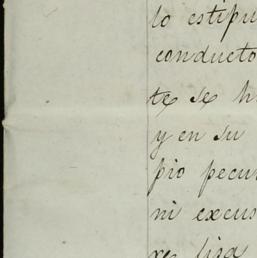 lo estipu
conducto
te se h
y en su
pio pecun
ni excus
lisa